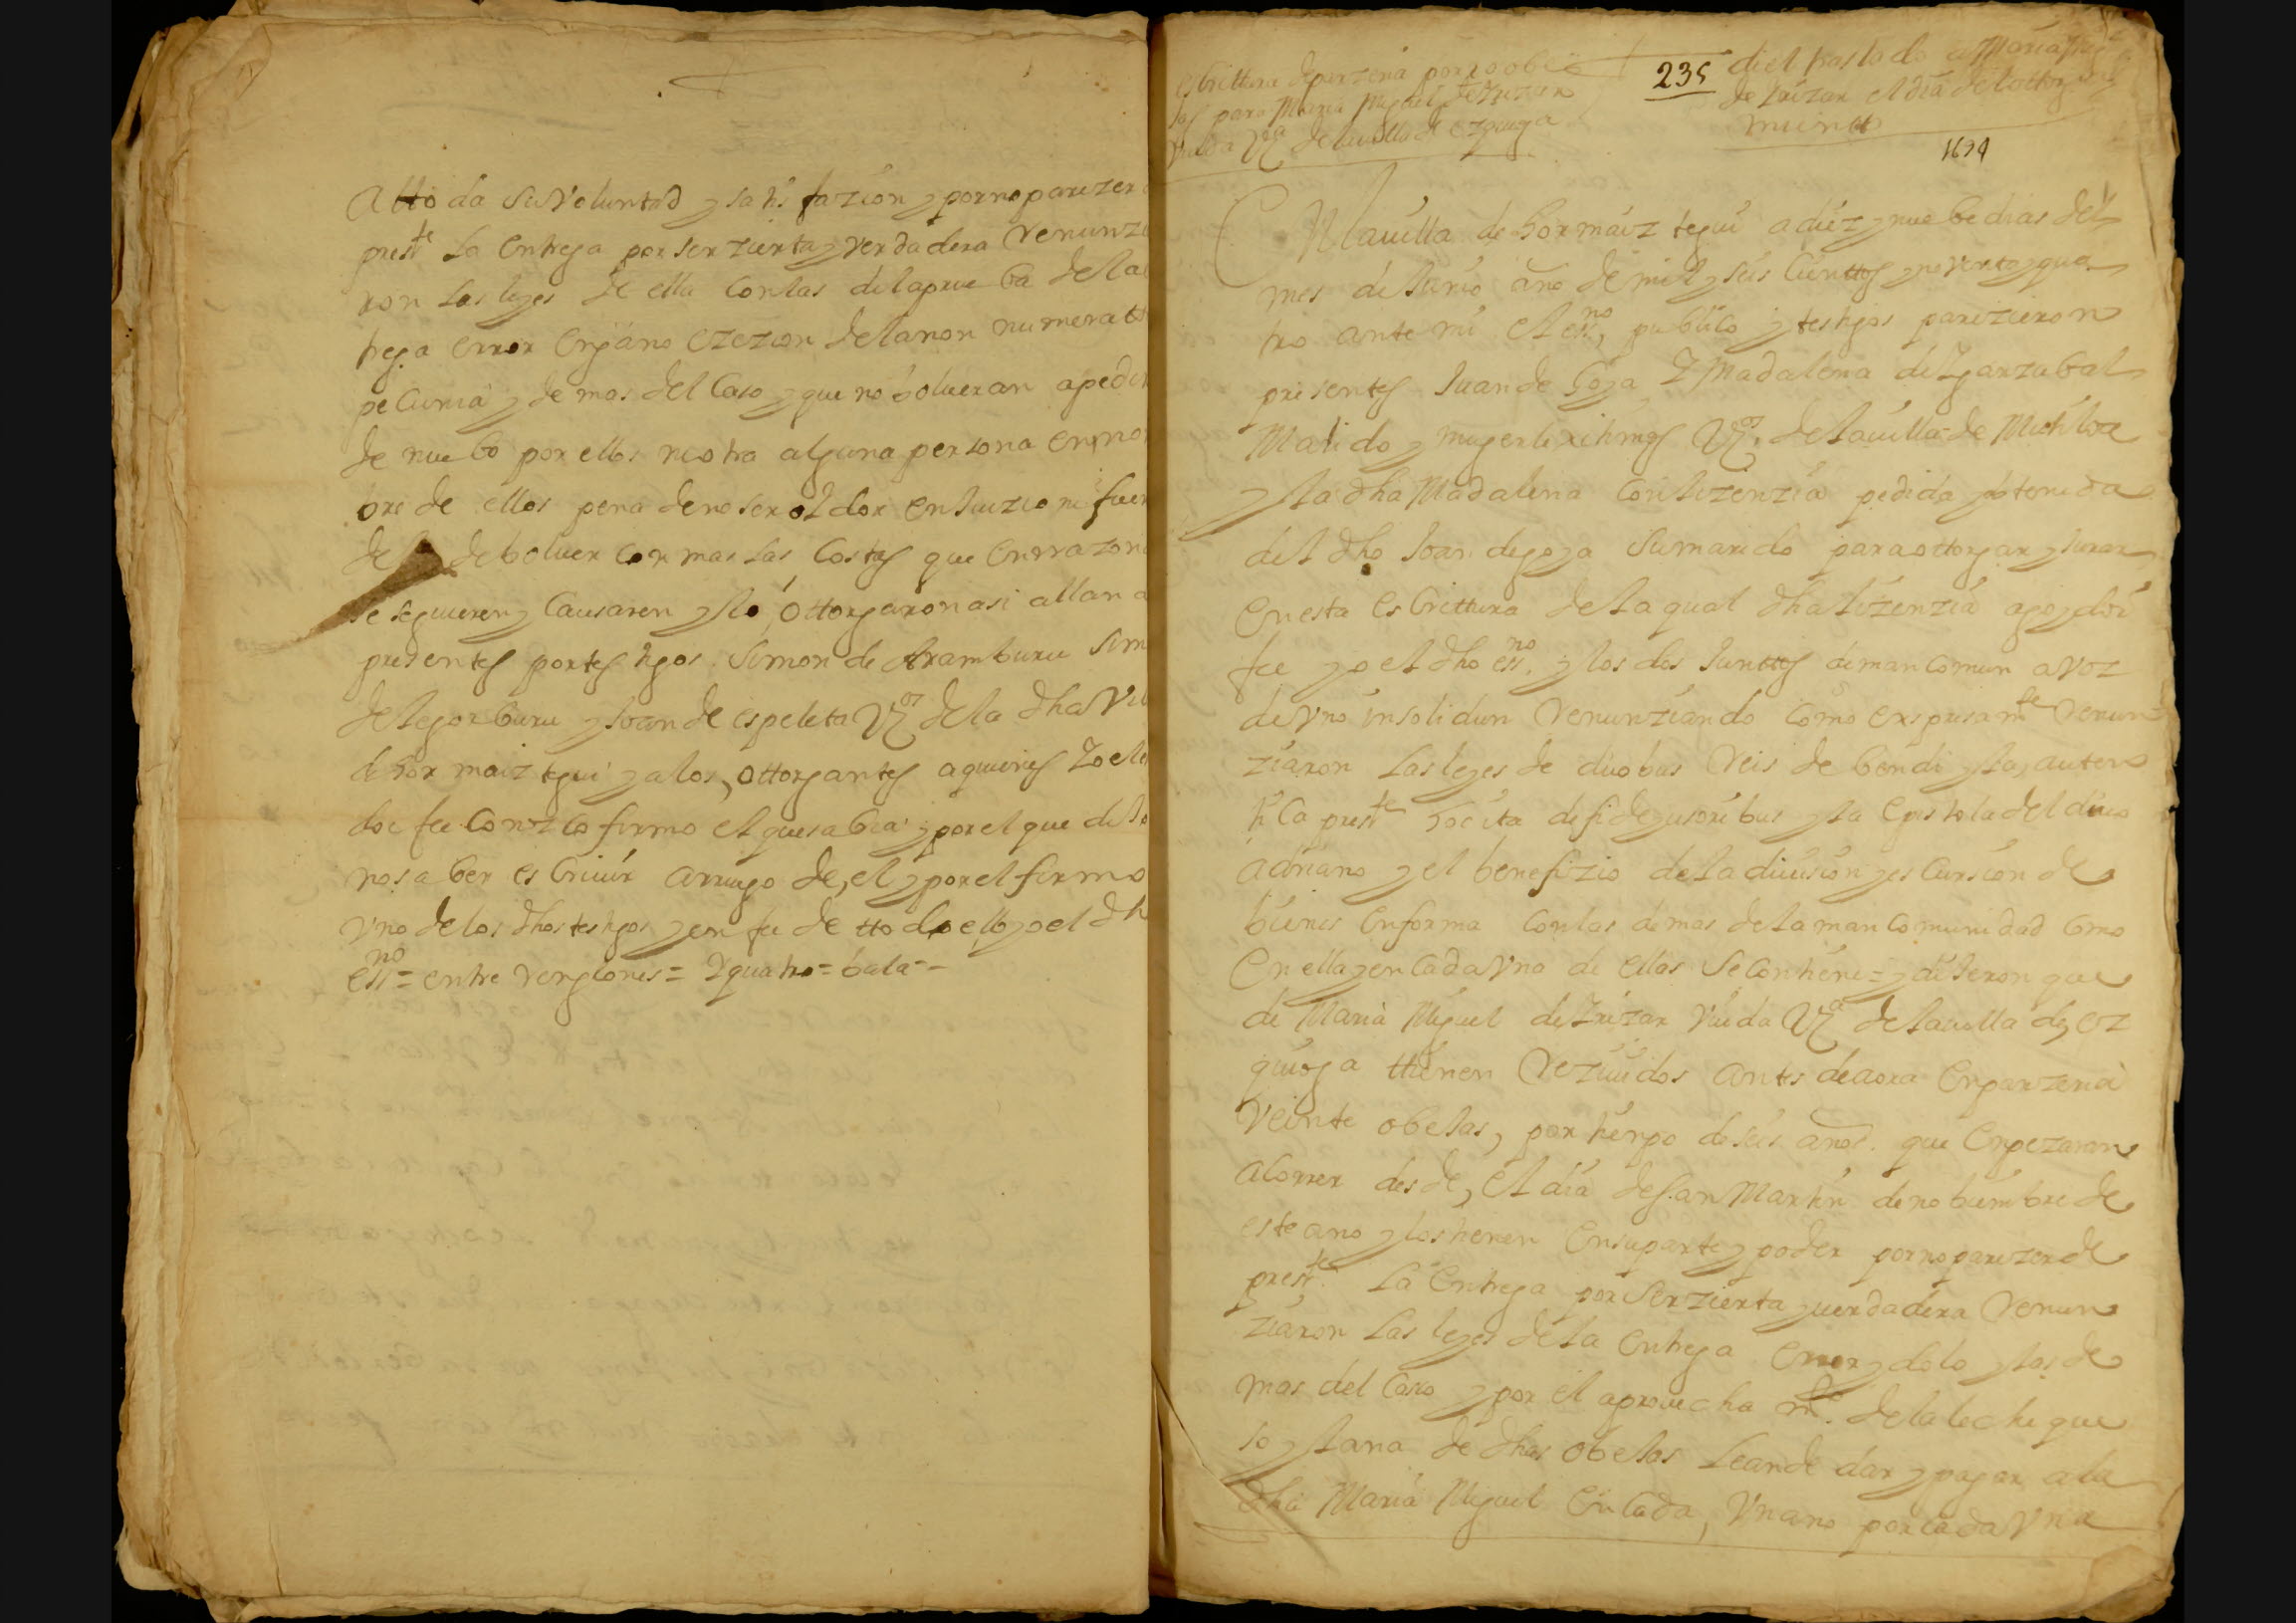 a tto da su voluntad y satisfazion y por no parezer
pres.te la entrega por ser zierta y verdadera renunzi
ron las leyes de ella con las de la prueba de la
trega error engano ezezion de la non numeratta
pecunia y demas del caso y que no bolueran a pedir
de nuebo por ellos ni otra alguna persona en nom
bre de ellos pena de no ser oidos en Juizio ni fuer
de deboluer con mas las costas que en razon
se seguieren y causaren y lo ottorgaron asi allan
presentes por testigos Simon de Aramburu Sim
de legorburu y Joan de espeleta Vz.os de la dha Vi
de Gormaiztegui y a los ottorgantes a quienes Yo el
doi fee conozco firmo el que sabia y por el que dixo
no saber escriuir a rruego de el y por el firmo
vno de los dhos testigos y en fee de ttodo ello yo el dh
ess.no = entre renglones = y quatro = bala =
escrittura de parzeria por 20 obe
jas para Maria Miguel de Yrizar
viuda Vz.a de la villa de ezquioga
235
di el traslado a Maria Mig.l
de Yrizar el dia de la ottorga
mientto
1694
En la villa de Gormaiztegui a diez y nuebe dias del
mes de Junio año de mil y seis cienttos y nouenta y qua
tro ante mi el ess.no publico y testigos parezieron
presentes Juan de Goya y Madalena de Ygarzabal
Marido y muger lexitimos Vz.os de la villa de Mutiloa
y la dha Madalena con lizenzia pedida y obtenida
del dho Joan de goya su marido para ottorgar y jurar
en esta escrittura de la qual dha lizenzia a yo doi
fee yo el dho ess.no y los dos Junttos de mancomun a voz
de vno insolidun renunziando como expresam.te renun
ziaron las leyes de duobus reis debendi y la auten
tica pres.te hocita de fideyusoribus y la epistola del diuo
adriano y el benefizio de la diuision y escursion de
bienes en forma con las demas de la mancomunidad como
en ella y en cada vna de ellas se contiene = y dixeron que
de Maria Miguel de Yrizar viuda Vz.a de la villa de ez
quioga ttienen rezuidos antes de aora en parzeria
veinte obejas, por tienpo de seis años que enpezaran
a correr desde el dia de San Martin de nobiembre de
este ano y los tienen en su parte y poder por no parezer de
pres.te la entrega por ser zierta y uerdadera renun
ziaron las leyes de la entrega error y dolo y las de
mas del caso y por el aprouecham.to de la leche que
so y lana de dhas obejas le an de dar y pagar a la
dha Maria Miguel en cada, vn ano por cada vna